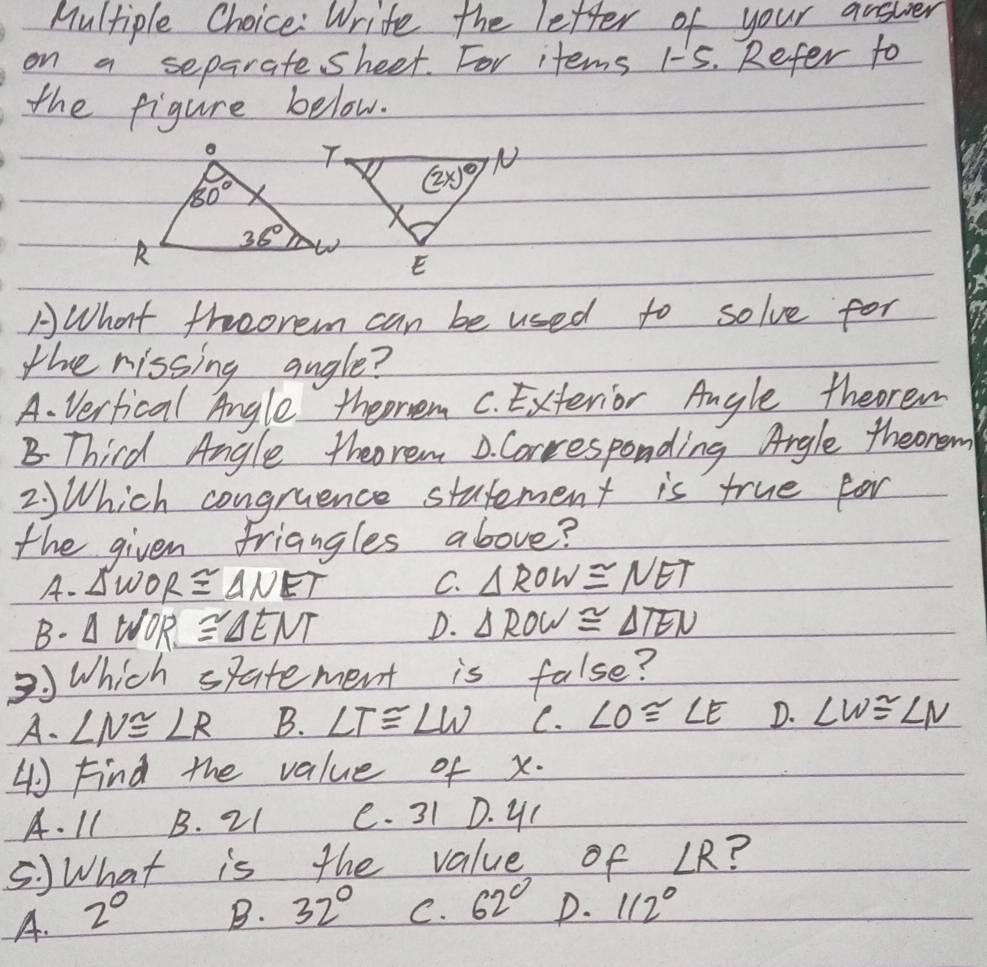 Multiple Choice: Write the letter of your answer
on a separate sheet. For items 1-5. Refer to
the figure below.
O T N
80° (2x)°
36°
R W E
1.) What theorem can be used to solve for
the missing angle?
A. Vertical Angle theorem C. Exterior Angle theorem
B. Third Angle theorem D. Corresponding Angle theorem
2.) Which congruence statement is true for
the given triangles above?
A. ΔWOR ≅ ΔNET C. ΔROW ≅ NET
B. Δ WOR ≅ ΔENT D. ΔROW ≅ ΔTEN
3.) Which statement is false?
A. ∠N ≅ ∠R B. ∠T ≅ ∠W C. ∠O ≅ ∠E D. ∠W ≅ ∠N
4.) Find the value of x.
A. 11 B. 21 C. 31 D. 41
5.) What is the value of ∠R?
A. 2° B. 32° C. 62° D. 112°